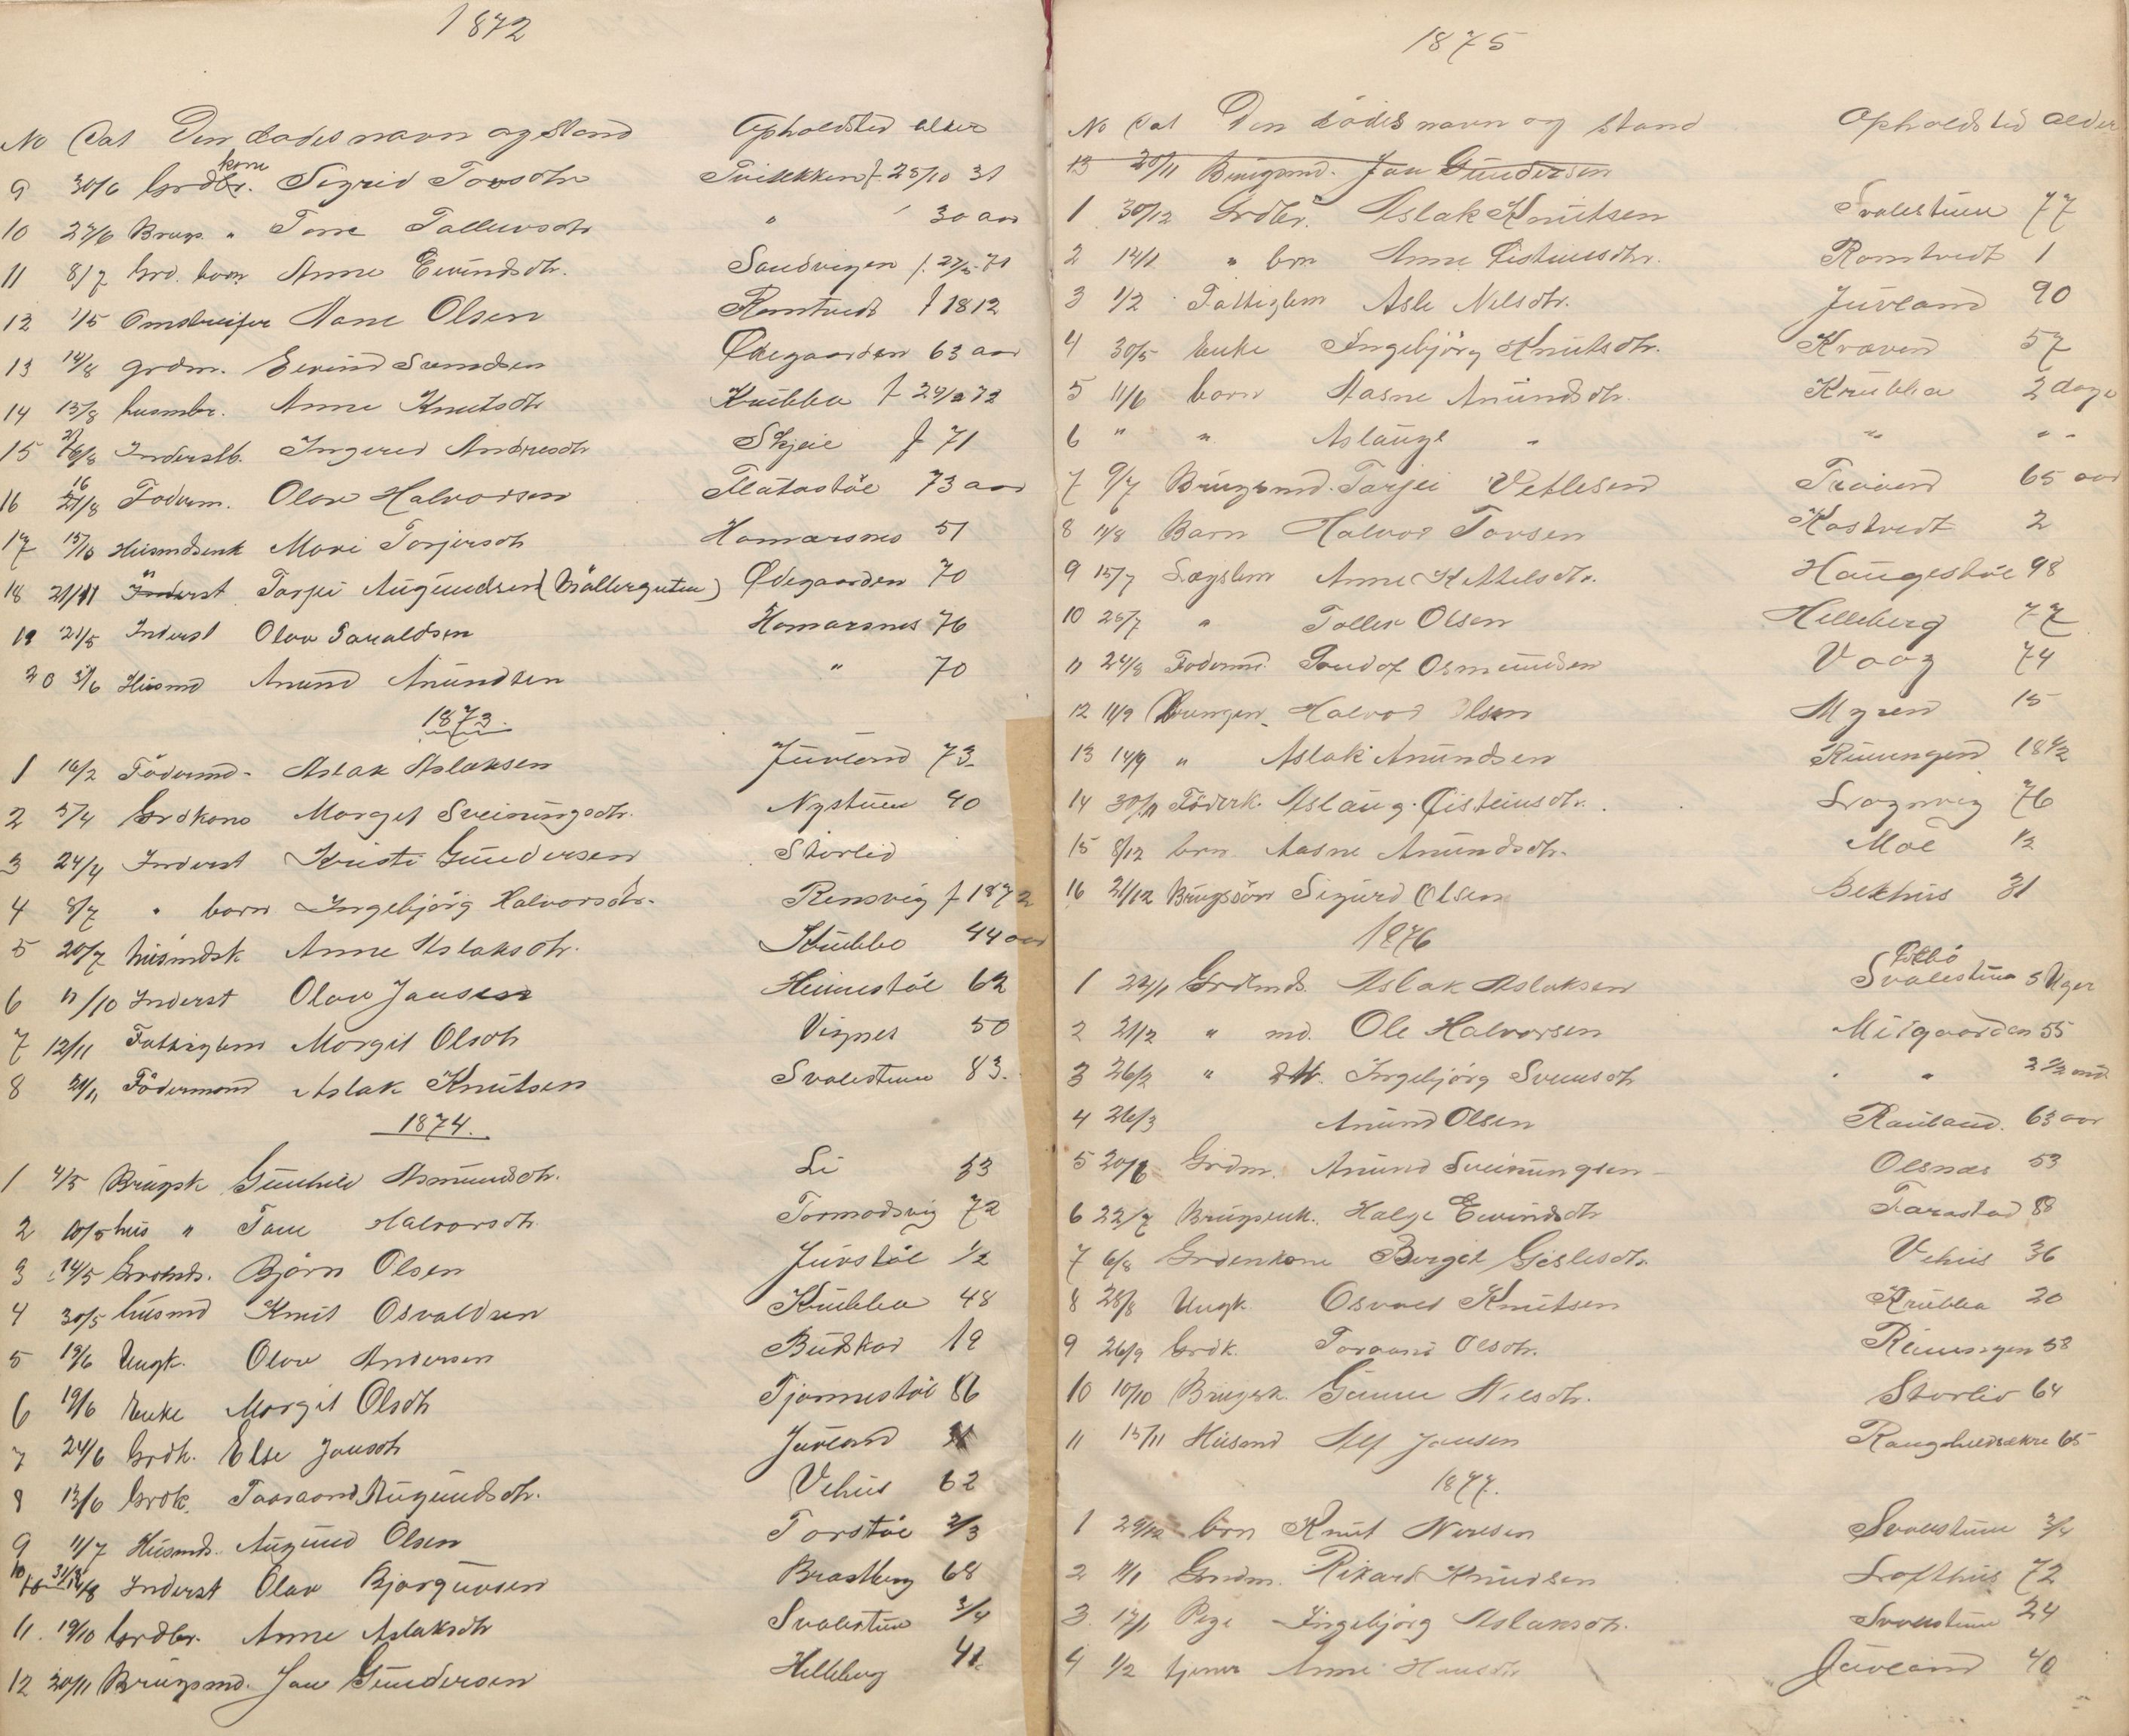 1872
No Dat Den dødes navn og Stand Opholdsted alder
kone
9 30/6 Grdbr. Sigrid Tovsdtr f. 25/10 31
10 27/6 Brugs. " Tone " 30 aar
11 8/7 Grd. barn Anne Eivindsdtr. Sandvigen f. 71
12 1/5 Olsen Romtvedt f 1812
13 14/8 grdm. Eivind Svendsen Ødegaarden 63 aar
14 13/8 husmbr. Anne Knutsdtr Krübba f 72
15 Inderstb. Ingered Andresdtr Skjeie f 71
16
16 21/8 Foderm. Olav Halvorsen Flatastöl 73 aar
17 15/10 Hüsmdsenk Mari Torjersdtr Hamarsnes 51
18 21/11 Inderst Tarjei Augundsen (Möllerguten) Ødegaarden 70
19 21/5 Inderst Olav Haraldsen Hamarsnes 76
20 Hüsmd Anund Anundsen " 70
1873.
1 16/2 Födermd. Aslak Aslaksen Jüvland 73
2 5/4 Grdkone Margit Sveinungsdtr. Nystuen 40
3 24/4 Inderst Gundersen Storlid
4 8/7 " barn Ingebjörg Halvorsdtr. Rensvig f 1872
5 20/7 hüsmdsk Anne Aslaksdtr. Krübba 44 aar
6 11/10 Inderst Olav Jansen Heimestöl 62
7 12/11 Fattiglem Margit Olsdtr Vignes 50
8 21/11 Födermand Aslak Knütsen Svalestuen 83.
1874.
1 4/5 Brügsk Günhild Asmundsdtr. Li 53
2 10/5 hüs " Tone Halvorsdtr Tormodsvig 72
3 14/5 Björn Olsen Jüvstöl 1/2
4 30/5 hüsmd Knüt Osvaldsen Krübba 48
5 19/6 Ungk. Olav Andersen Büdkar 19
6 19/6 Enke Margit Olsdtr Tjønnestöl 86
7 24/6 Grdk. Else Jansdtr Jüvland
8 13/6 Grdk. Taaraand Augundsdtr. Vehüs 62
9 11/7 Hüsmds. Augund Olsen Torstöl 2/3
10 Inderst Olav Bjørgüvsen Brastberg 68
11. 19/10 Grdbr. Anne Aslaksdtr Svalestuen 3/4
12 20/11 Brügsmd. Jan Gündersen Helleberg 41
1875
No Dat Den dödes navn og stand Opholdsted Alder
13 20/11 Brugsmd. Jan Gündersen
1 30/12 Grdbr. Aslak Knütsen Svalestuen 77
2 12/1 " brn Anne Øisteinsdtr. Romtvedt 1
3 1/2 Fattiglem Asle Nilsdtr. Jüvland 90
4 30/5 Enke Ingebjörg Knütsdtr. Kraven 57
5 11/6 barn Aasne Anündsdtr. Krübba 2 dage
6 " " Aslaüg " " " "
7 9/7 Brügsmd. Tarjei Vetlesen 65 aar
8 11/8 Barn Halvor Tovsen Kostvedt 2
9 15/7 Lægslem Anne Kittelsdtr. Haugestöl 98
10 25/7 " Tollev Olsen Helleberg 77
11 24/8 Födermd. Osmundsen Vaag 74
12 11/9 Drengen Halvor Olsen Myren 15
13 14/9 " Aslak Anundsen Rüüngen 18 1/2
14 30/11 Föderk. Aslaüg Øisteinsdtr. Lognvig 76
15 8/12 brn Aasne Anundsdtr. Moe 1/2
16 21/12 Brügssön Sigurd Olsen Bekhüs 31
1876
1 22/1 Grdmds. Aslak Aslaksen Svalestüen 5 Uger
2 21/2 " md. Ole Halvorsen Midgaarden 55
3 26/2 " dtr. Ingebjörg Svensdtr " " 2 1/2 md.
4 26/3 Anünd Olsen Rauland. 63 aar
5 20/6 Grdm. Anund Sveinungsen Olsnes 53
6 22/7 Brügsenk. Helge Eivindsdtr Farastad 88
7 6/8 Grdenkone Bergit Gislesdtr. Vehüs 36
8 28/8 Ungk. Osvald Knütsen Krübba 20
9 26/9 Grdk. Toraand Olsdtr. Rüüngen 58
10 10/10 Brügsk. Günne Nilsdtr. Storlid 64
11 15/11 Hüsmd Alf Jansen 65
1877.
1 29/12 brn Knüt Nirisen Svalestüen 3/4
2 11/1 Grndm. Rikard Knüdsen Lofthüs 72
3 17/1 Pige Ingebjörg Aslaksdtr. Svalestüen 24
4 1/2 tjener Anne Hansdtr Jüvland 40